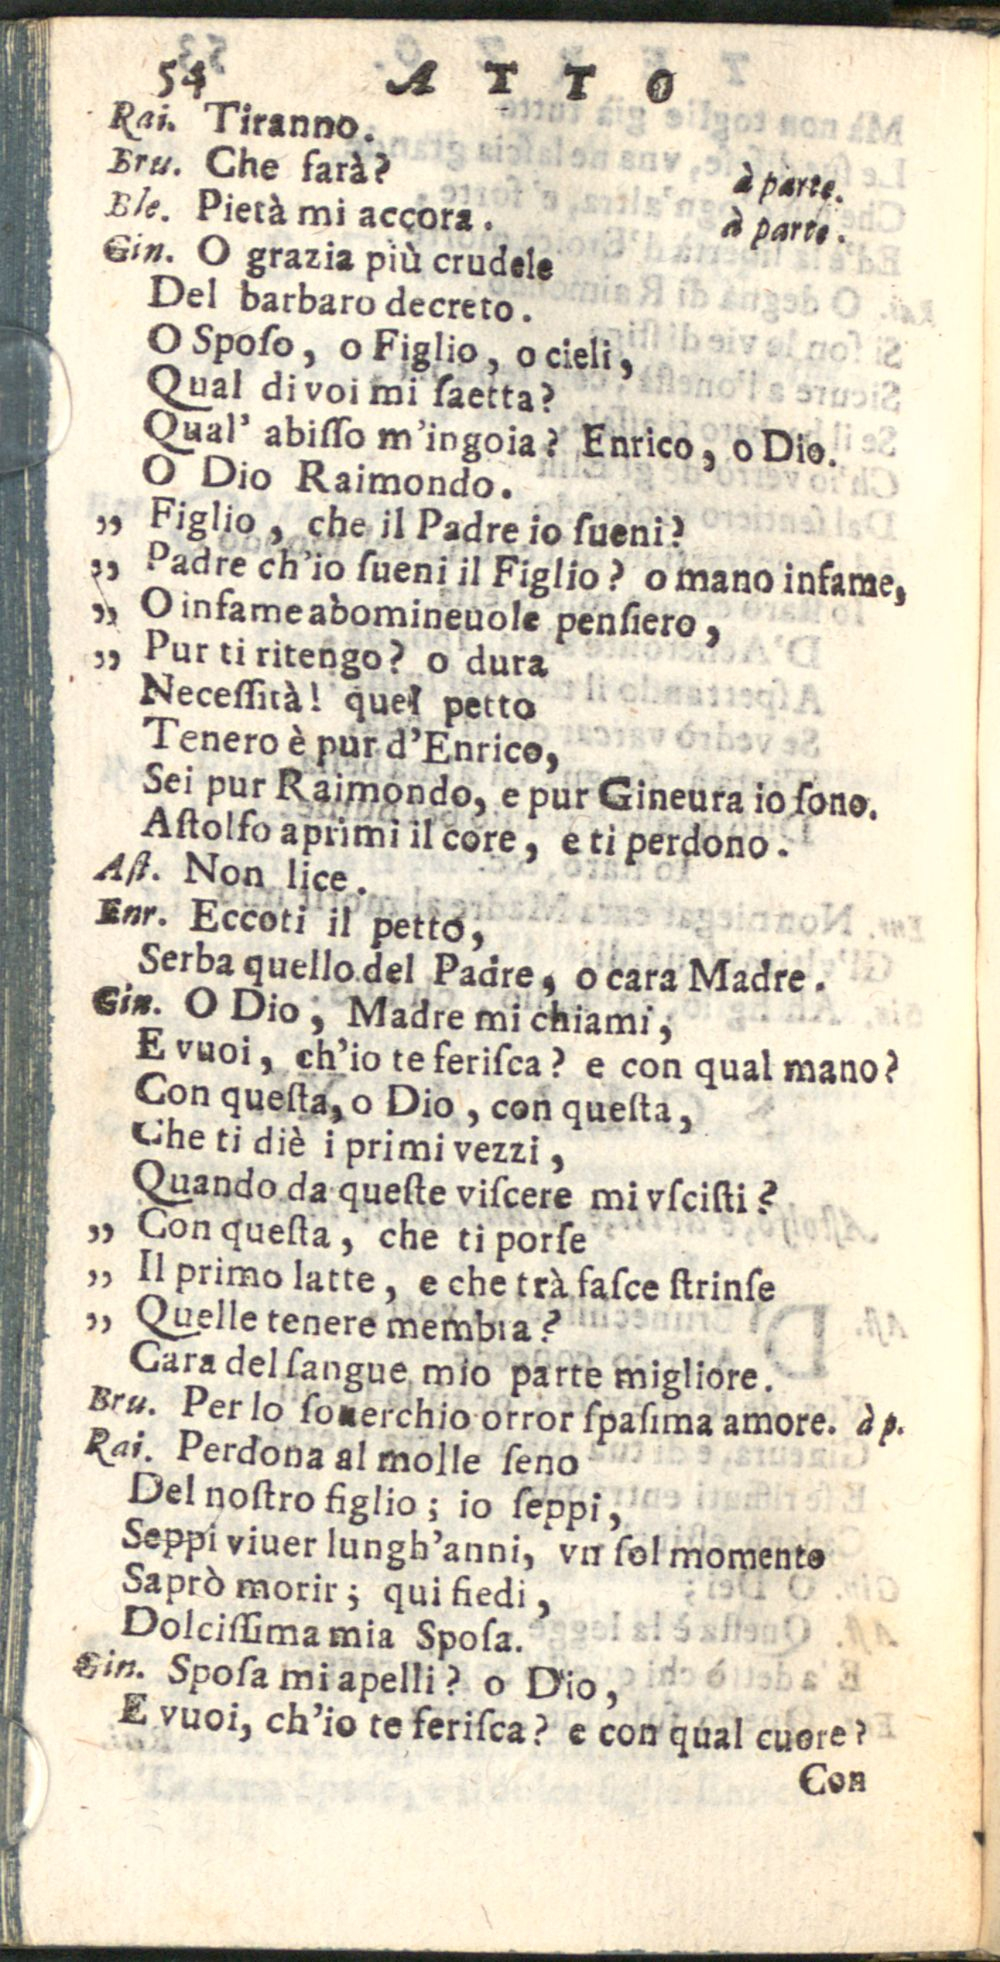 54 ATTO
Rai. Tiranno.
Bru. Che farà? à parte.
Ble. Pietà mi accora. à parte.
Gin. O grazia più crudele
Del barbaro decreto.
O Spoſo, o Figlio, o cieli,
Qual di voi mi ſaetta?
Qual' abiſſo m'ingoia? Enrico, o Dio.
O Dio Raimondo.
„ Figlio, che il Padre io ſueni?
„ Padre ch'io ſueni il Figlio? o mano infame,
„ O infame abomineuole penſiero,
„ Pur ti ritengo? o dura
Neceſſità! quel petto
Tenero è pur d'Enrico,
Sei pur Raimondo, e pur Gineura io ſono.
Aſtolfo aprimi il core, e ti perdono.
Aſt. Non lice.
Enr. Eccoti il petto,
Serba quello del Padre, o cara Madre.
Gin. O Dio, Madre mi chiami,
E vuoi, ch'io te feriſca? e con qual mano?
Con queſta, o Dio, con queſta,
Che ti diè i primi vezzi,
Quando da queſte viſcere mi vſciſti?
„ Con queſta, che ti porſe
„ Il primo latte, e che trà faſce ſtrinſe
„ Quelle tenere membra?
Cara del ſangue mio parte migliore.
Bru. Per lo ſouerchio orror ſpaſima amore. à p.
Rai. Perdona al molle ſeno
Del noſtro figlio; io ſeppi,
Seppi viuer lungh'anni, vn ſol momento
Saprò morir; qui fiedi,
Dolciſſima mia Spoſa.
Gin. Spoſa mi apelli? o Dio,
E vuoi, ch'io te feriſca? e con qual cuore?
Con